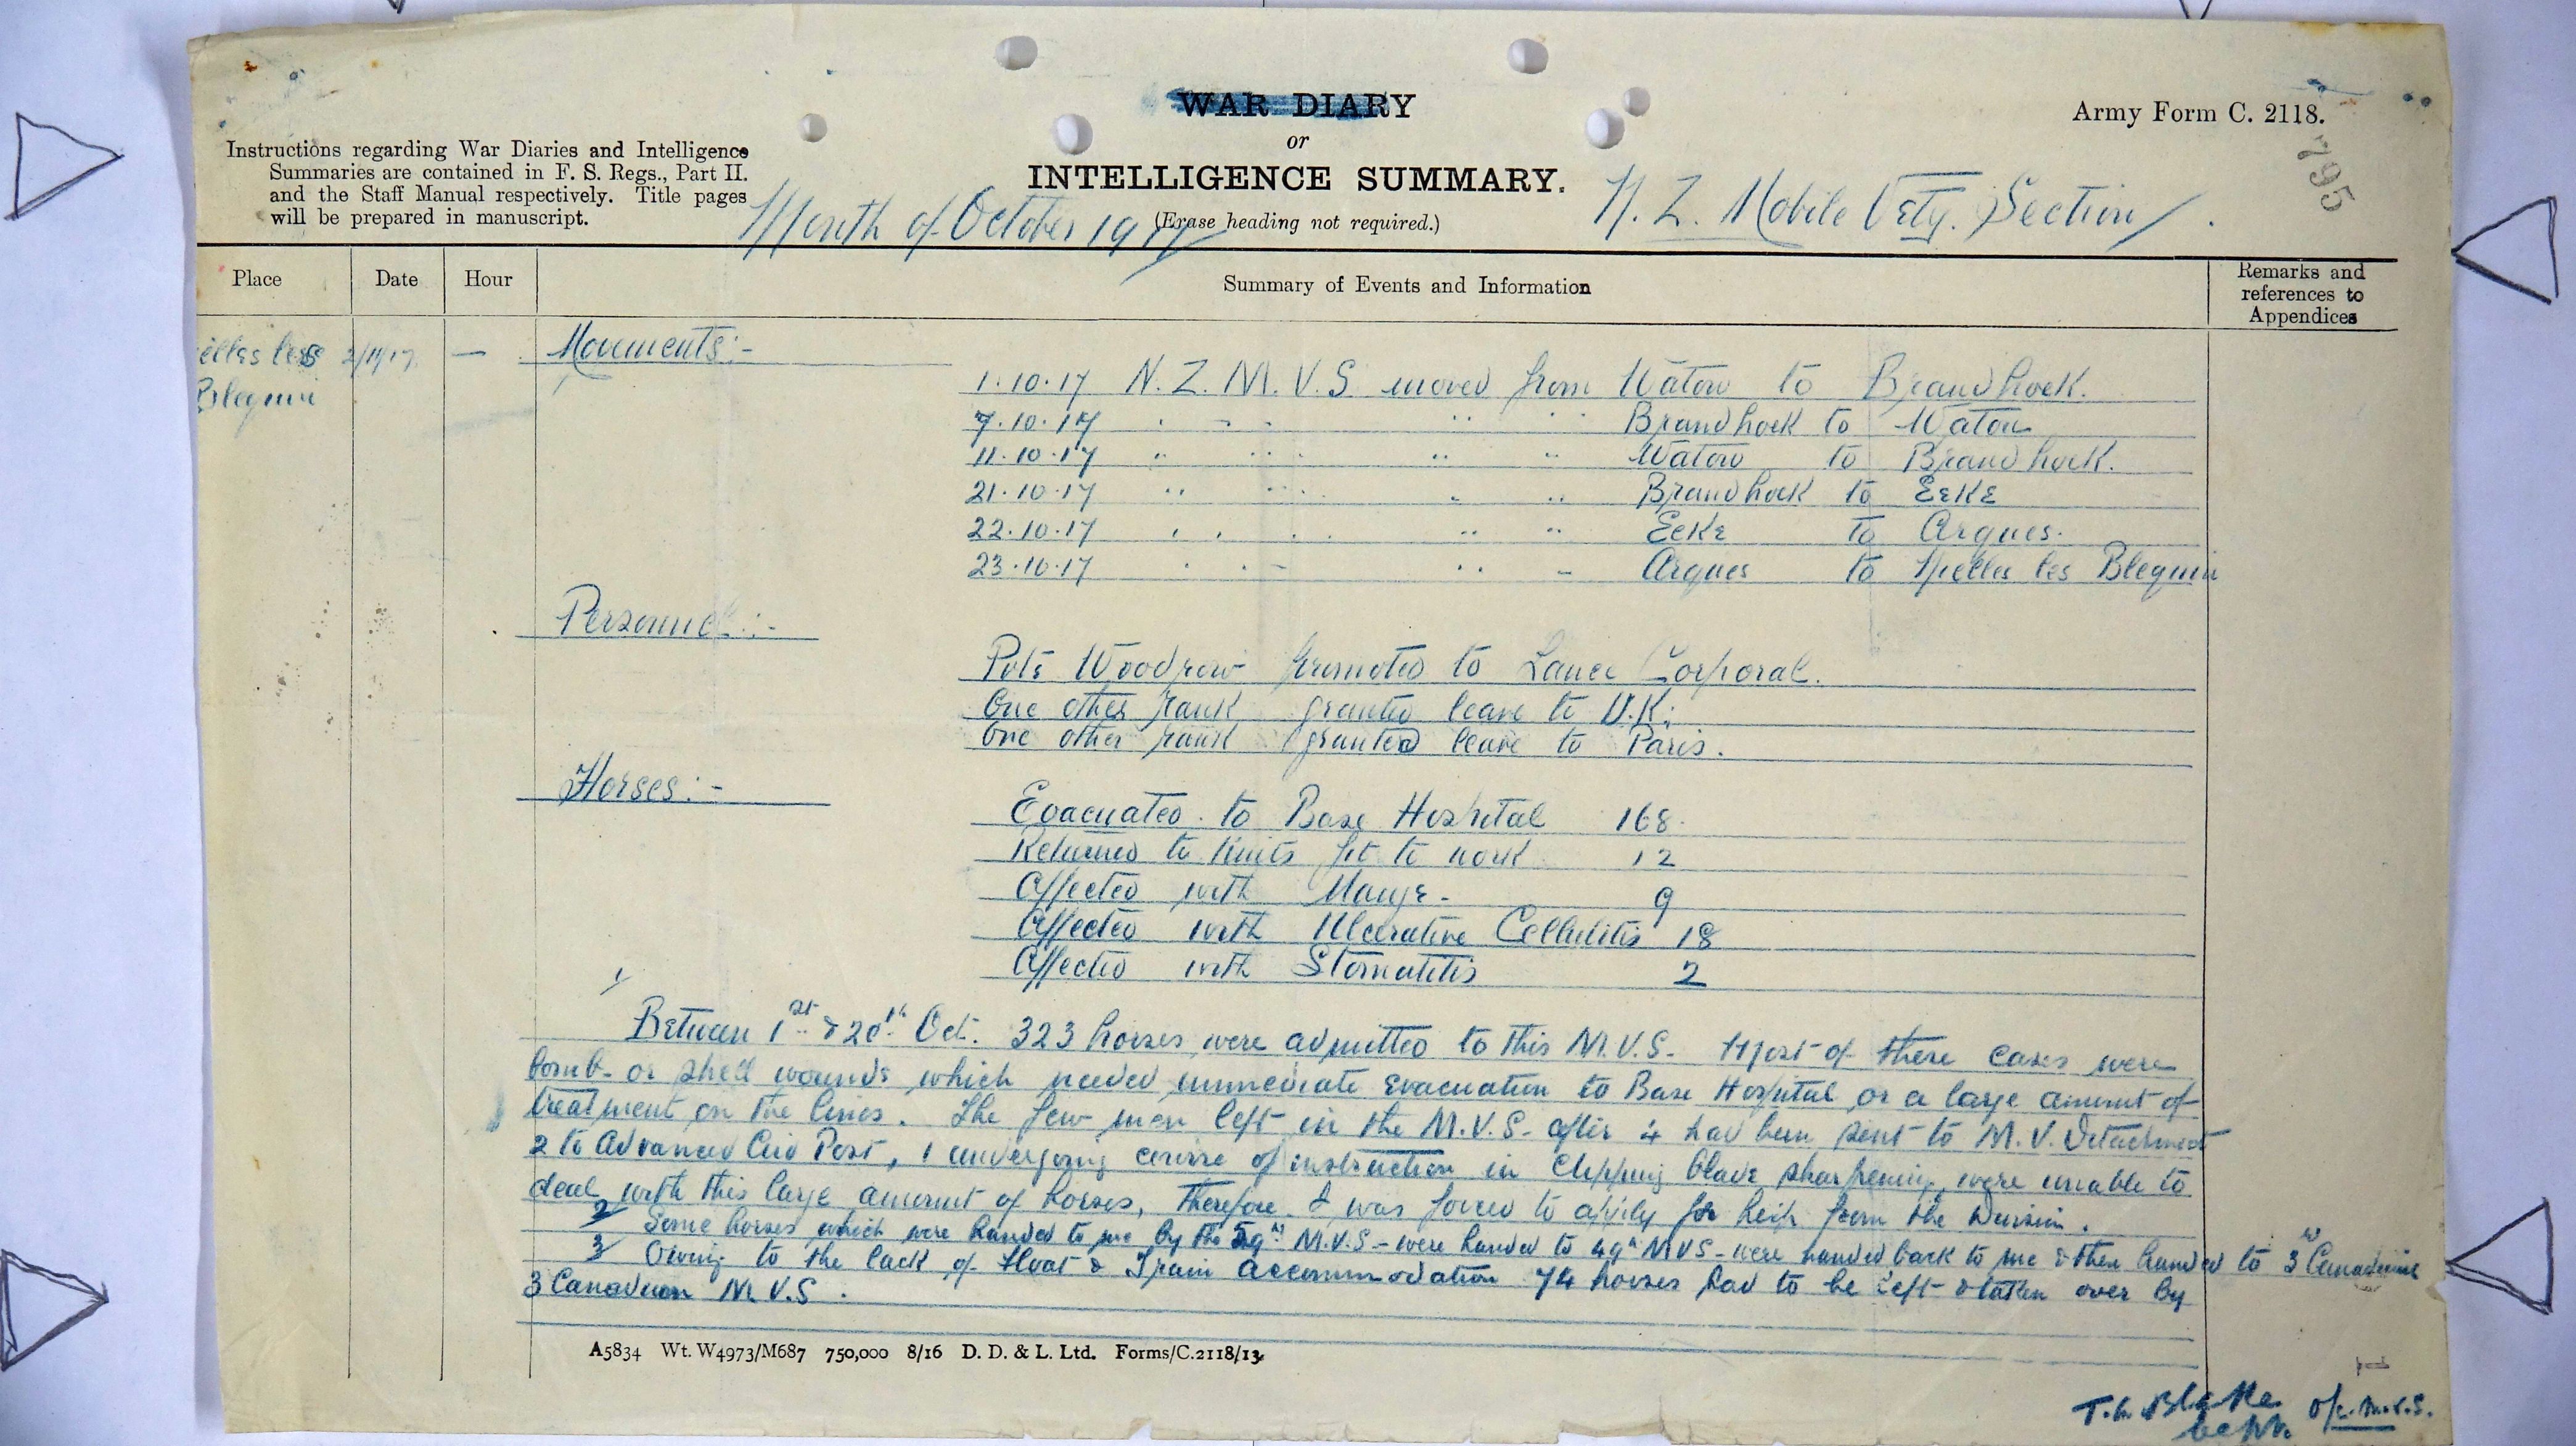 WAR DIARY
or
INTELLIGENCE SUMMARY.
(Erase heading not required.)
Army Form C. 2118.
795
Instructions regarding War Diaries and Intelligence
Summaries are contained in F. S. Regs., Part II.
and the Staff Manual respectively. Title pages
will be prepared in manuscript.
Month of October 1917
N. Z. Mobile Vety. Section
Place Date Hour Summary of Events and Information Remarks and references to Appendices
elles les 2/11/17 — Movements:-
Blequin
1.10.17 N. Z. M. V. S. moved from Watou to Brandhoek.
7.10.17 " " " " " Brandhoek to Watou
11.10.17 " " " " " Watou to Brandhoek.
21.10.17 " " " " " Brandhoek to Eeke
22.10.17 " " " " " Eeke to Arques.
23.10.17 " " " " " Arques to les Blequin
Personnel:-
Woodrow promoted to Lance Corporal.
One other rank granted leave to U.K.
One other rank granted leave to Paris.
Horses:-
Evacuated to Base Hospital 168.
Returned to Units fit to work 12
Affected with Mange. 9
Affected with Ulcerative Cellulitis 18
Affected with Stomatitis 2
1/ Between 1st & 20th Oct. 323 horses were admitted to this M.V.S. Most of these cases were
bomb or shell wounds which needed immediate evacuation to Base Hospital or a large amount of
treatment on the lines. The few men left in the M.V.S. after 4 had been sent to M.V. Detachment
2 to Advanced Aid Post, 1 undergoing course of instruction in Clipping blade sharpening, were unable to
deal with this large amount of horses, therefore I was forced to apply for help from the Division.
2/ Some horses which were handed to me by the 59th M.V.S. - were handed to 49th MVS - were handed back to me & then handed to 3rd Canadian
3/ Owing to the lack of float & Train accommodation 74 horses had to be left & taken over by
3 Canadian M.V.S.
A5834 Wt. W4973/M687 750,000 8/16 D. D. & L. Ltd. Forms/C.2118/13.
Blake
O/c. M.V.S.